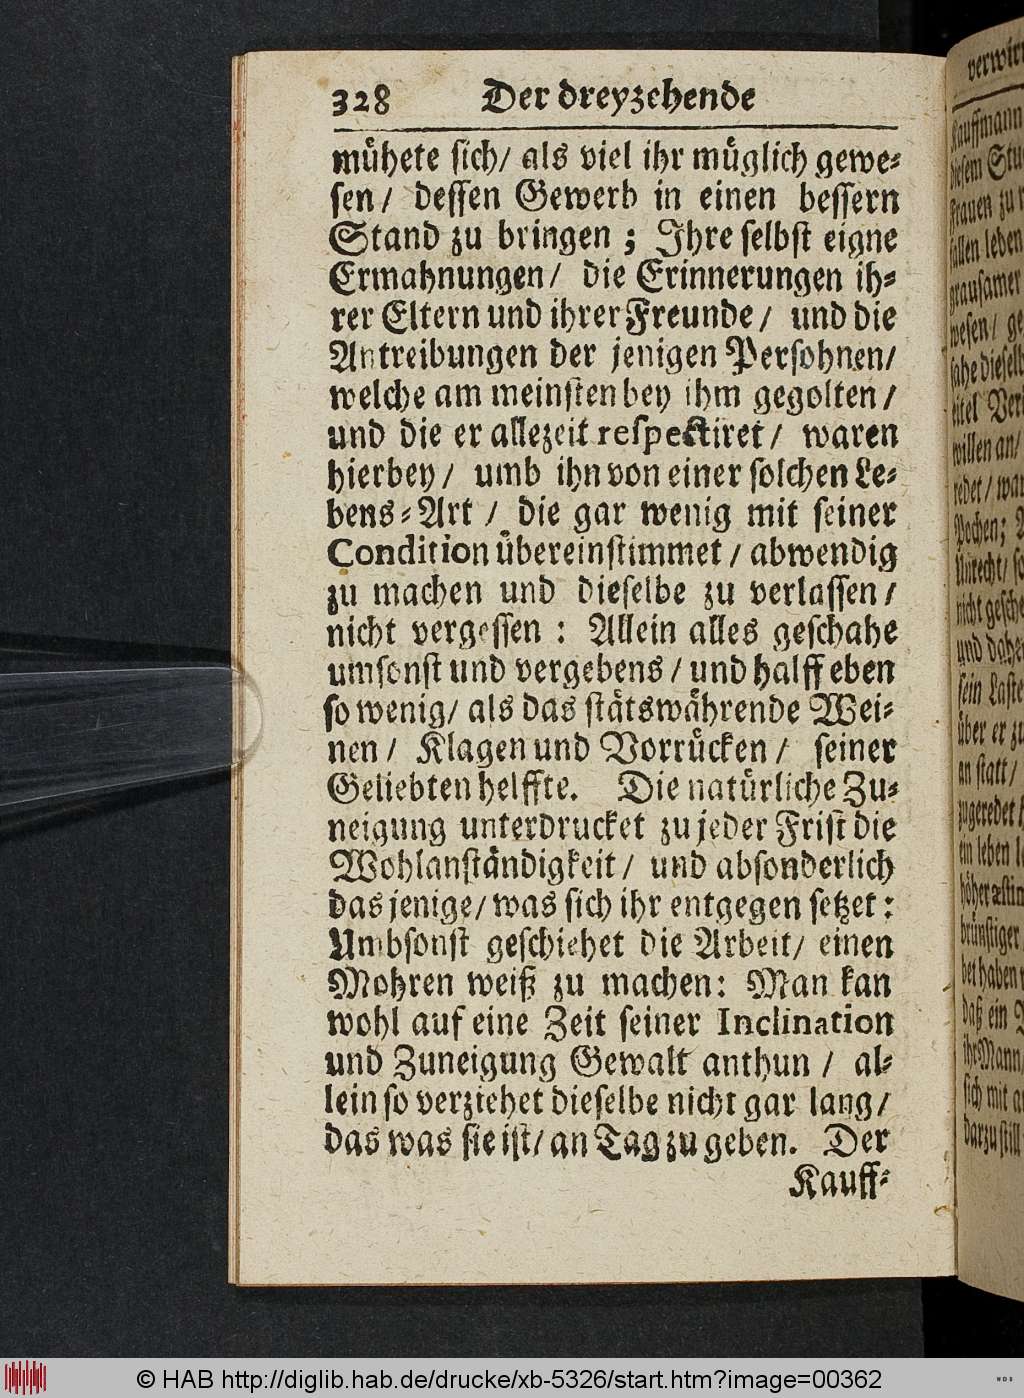 328 Der dreyzehende
mühete sich/ als viel ihr müglich gewe-
sen/ dessen Gewerb in einen bessern
Stand zu bringen; Ihre selbst eigne
Ermahnungen/ die Erinnerungen ih-
rer Eltern und ihrer Freunde/ und die
Antreibungen der jenigen Persohnen/
welche am meinsten bey ihm gegolten/
und die er allezeit respectiret/ waren
hierbey/ umb ihn von einer solchen Le-
bens-Art/ die gar wenig mit seiner
Condition übereinstimmet/ abwendig
zu machen und dieselbe zu verlassen/
nicht vergessen: Allein alles geschahe
umsonst und vergebens/ und halff eben
so wenig/ als das stätswährende Wei-
nen/ Klagen und Vorrücken/ seiner
Geliebten helffte. Die natürliche Zu-
neigung unterdrucket zu jeder Frist die
Wohlanständigkeit/ und absonderlich
das jenige/ was sich ihr entgegen setzet:
Umbsonst geschiehet die Arbeit/ einen
Mohren weiß zu machen: Man kan
wohl auf eine Zeit seiner Inclination
und Zuneigung Gewalt anthun/ al-
lein so verziehet dieselbe nicht gar lang/
das was sie ist/ an Tag zu geben. Der
Kauff-
verwirr
Kauffmann
diesem
Frauen zu
fallen leben
grausamer
wesen/ ge
sahe dieselb
willen an/
redet/ war
Pochen;
Unrecht/ so
nicht gesche
und daher
sein Laste
über er zu
an statt/
zugeredet
ein leben
höher æstim
brünstiger
bet haben
daß ein
ihr Mann
sich mit
darzu still
© HAB http://diglib.hab.de/drucke/xb-5326/start.htm?image=00362